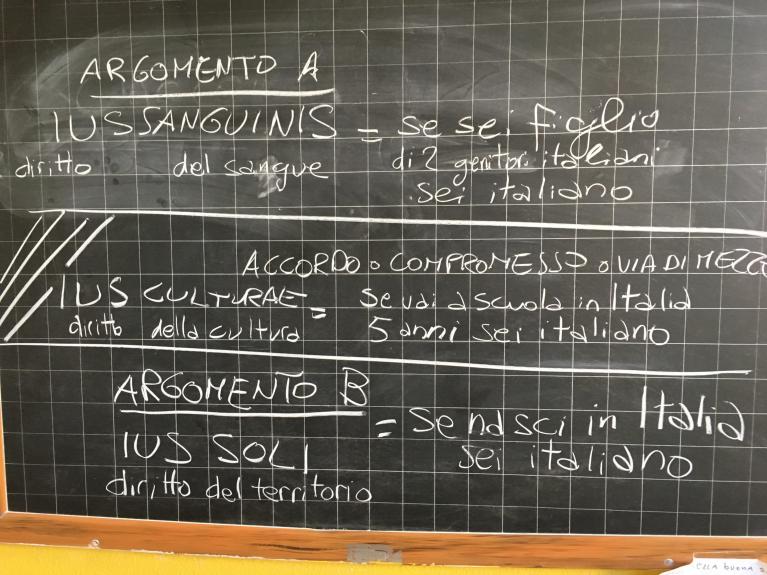 ARGOMENTO A
IUS SANGUINIS = se sei figlio
diritto del sangue di 2 genitori italiani
sei italiano
ACCORDO o COMPROMESSO o VIA DI MEZZO
IUS CULTURAE = se vai a scuola in Italia
diritto della cultura 5 anni sei italiano
ARGOMENTO B
= se nasci in Italia
IUS SOLI sei italiano
diritto del territorio
ELLA buona